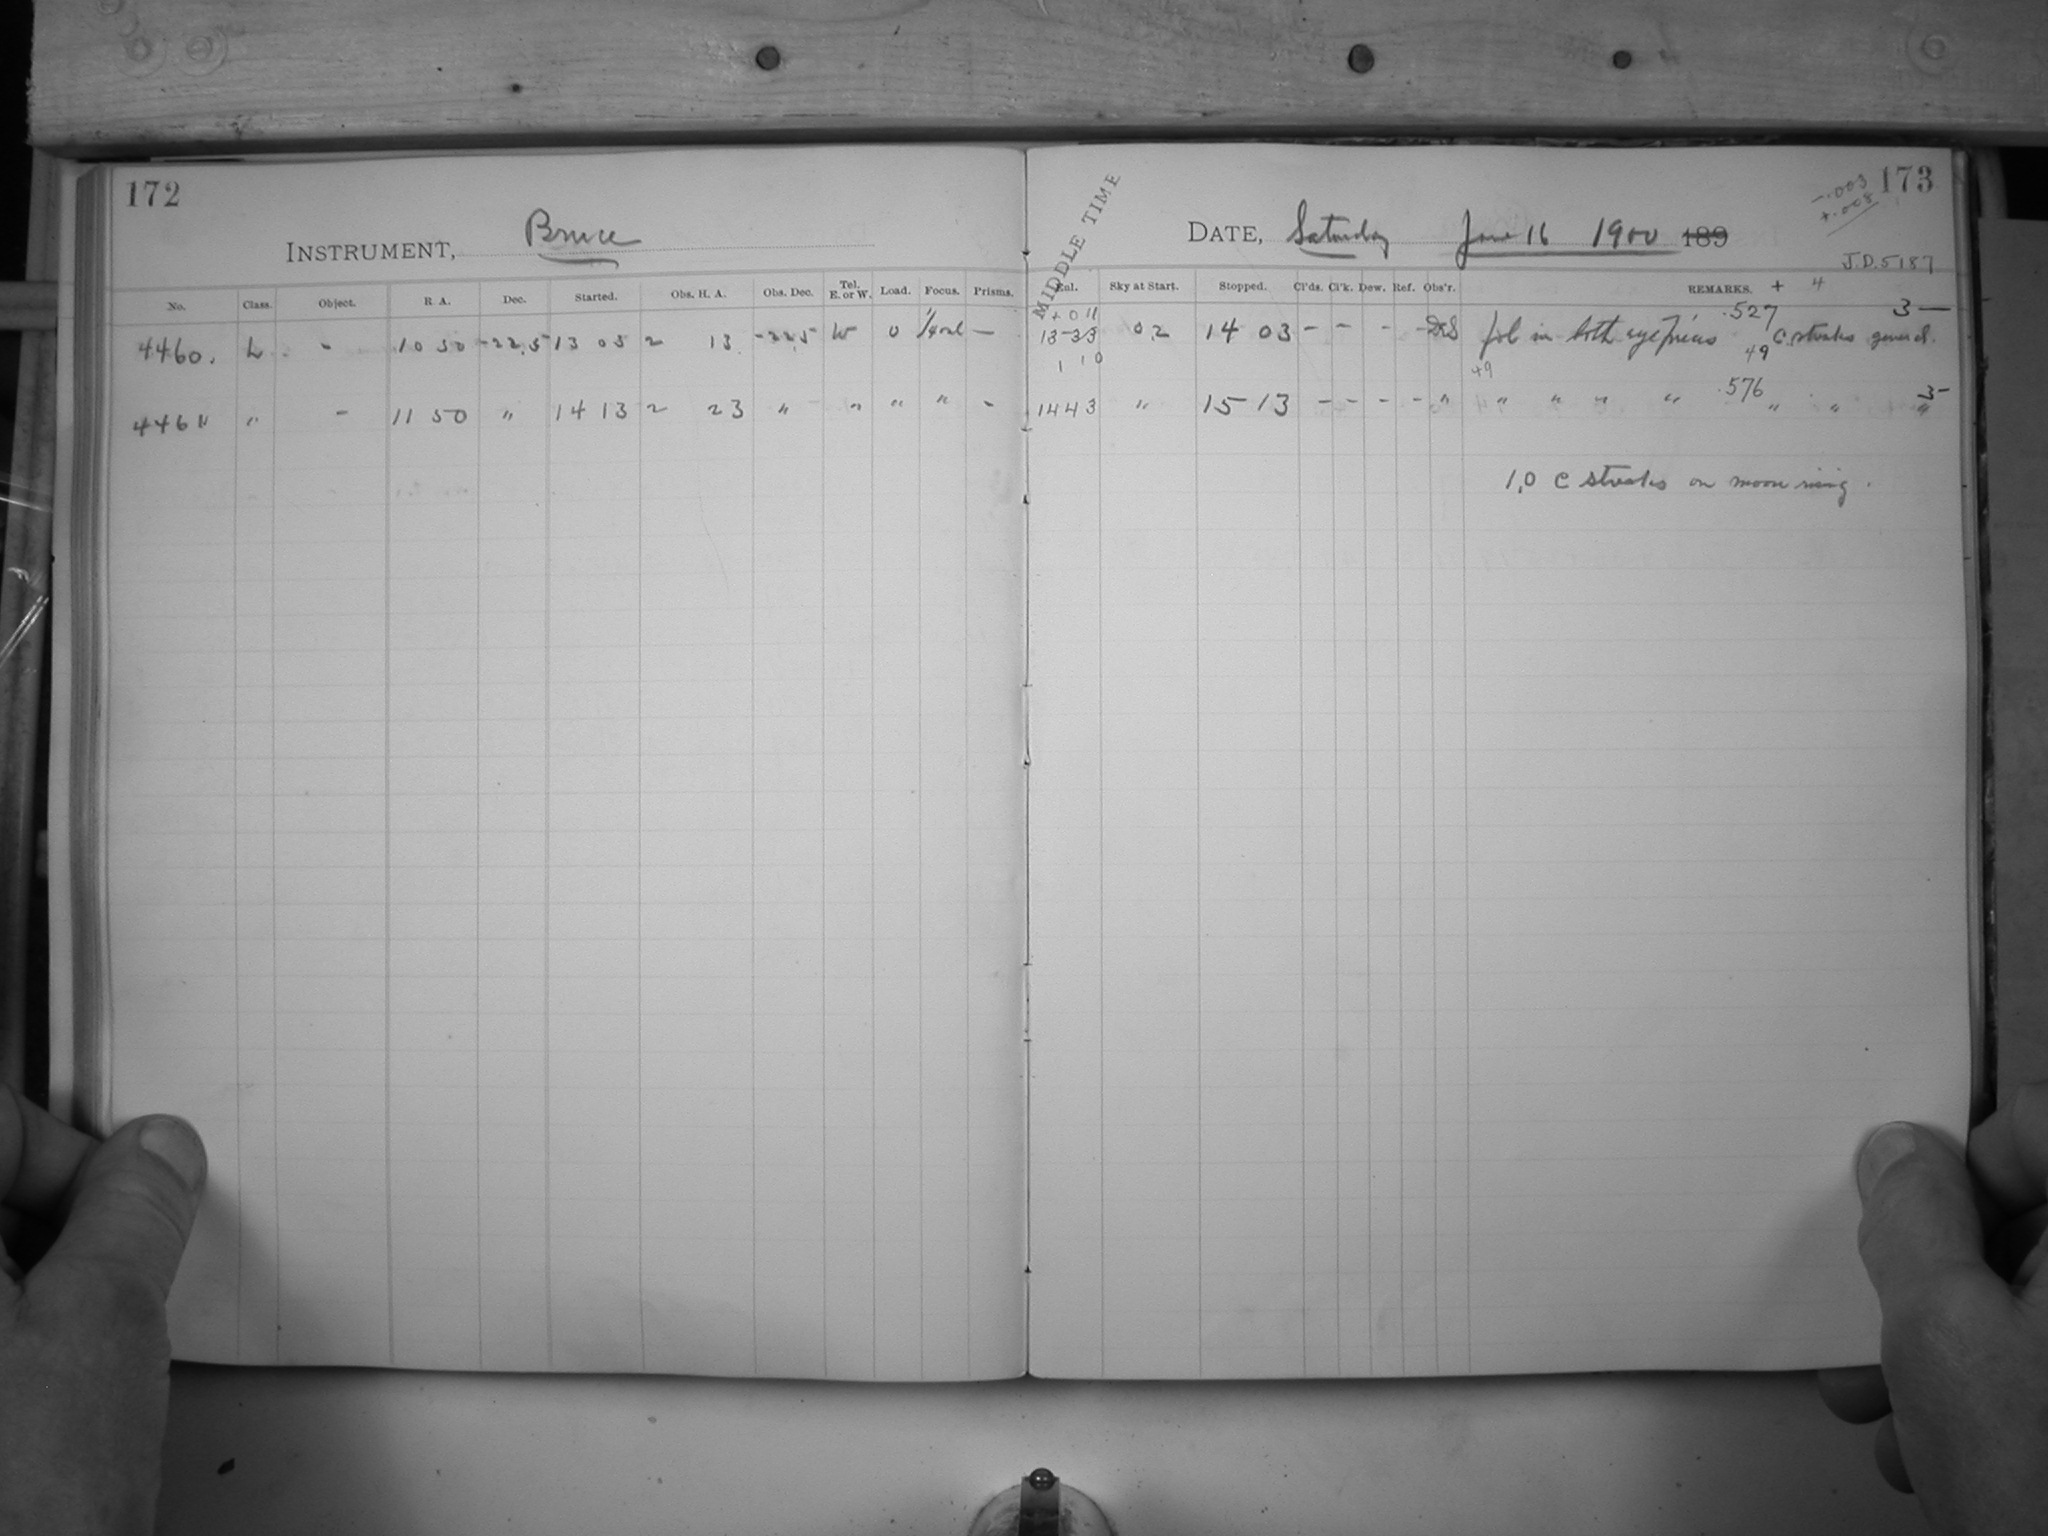 172
INSTRUMENT, Bruce
No. Class. Object. R. A. Dec. Started. Obs. H. A. Obs. Dec. Tel. E. or W. Load. Focus. Prisms.
4460. L - 10 50 -22.5 13 05 2 13 -22.5 W 0 —
446 " - 11 50 " 14 13 2 23 " " " " -
173
-.003
+.008
MIDDLE TIME
DATE, Saturday June 16 1900 189
J.D. 5187
Exl. Sky at Start. Stopped. Cl'ds. Cl'k. Dew. Ref. Obs'r. REMARKS. + 4
+ 011 .527 3 —
13-33 02 14 03 - - - - in both eyepieces C. streaks general.
1 10 49
49 .576 3-
1443 " 15 13 - - - - " " " " " " " "
1,0 C streaks on moon rising.